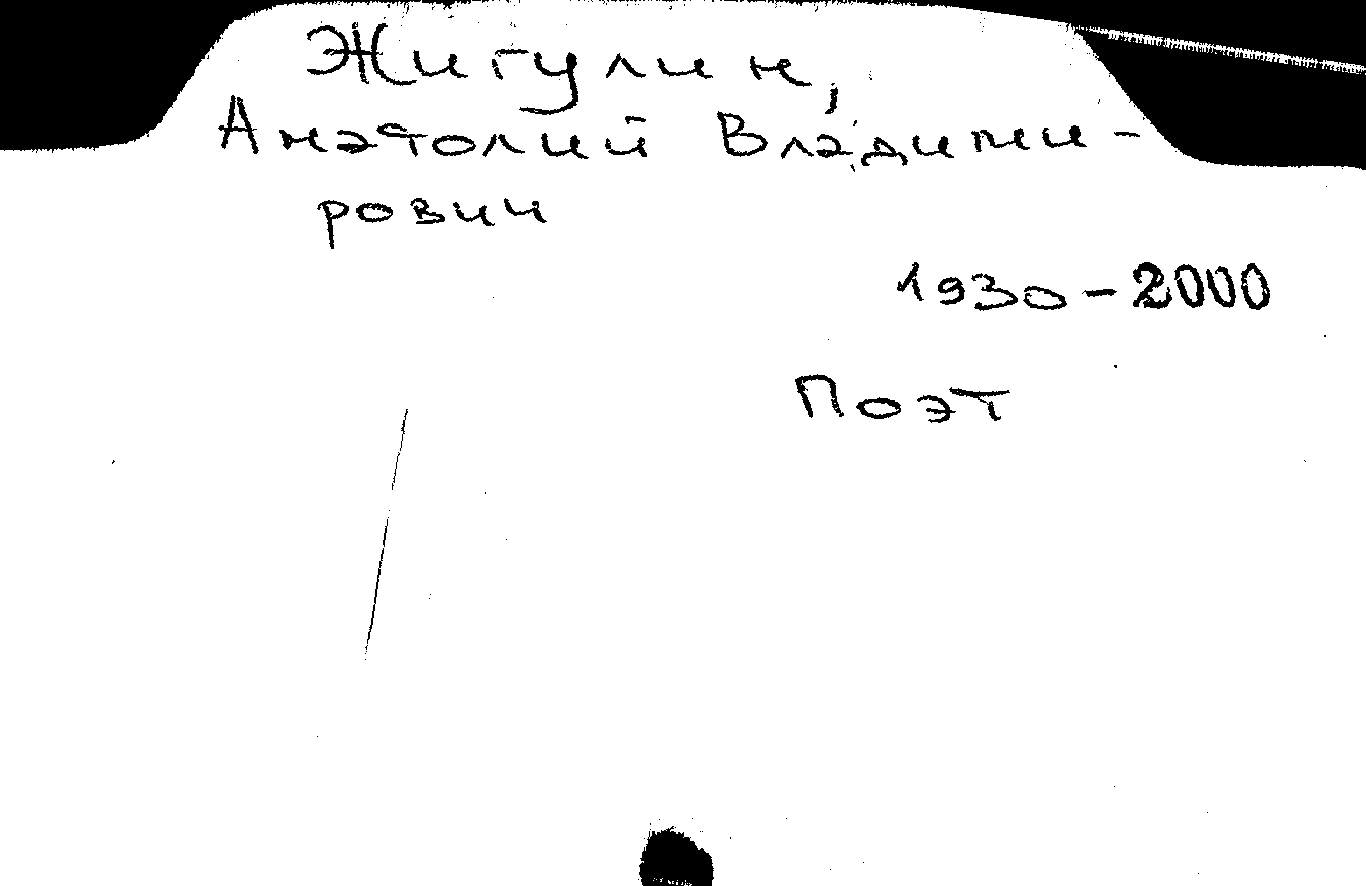 Жигулин,
Анатолий Владими-
рович
1930-2000
Поэт